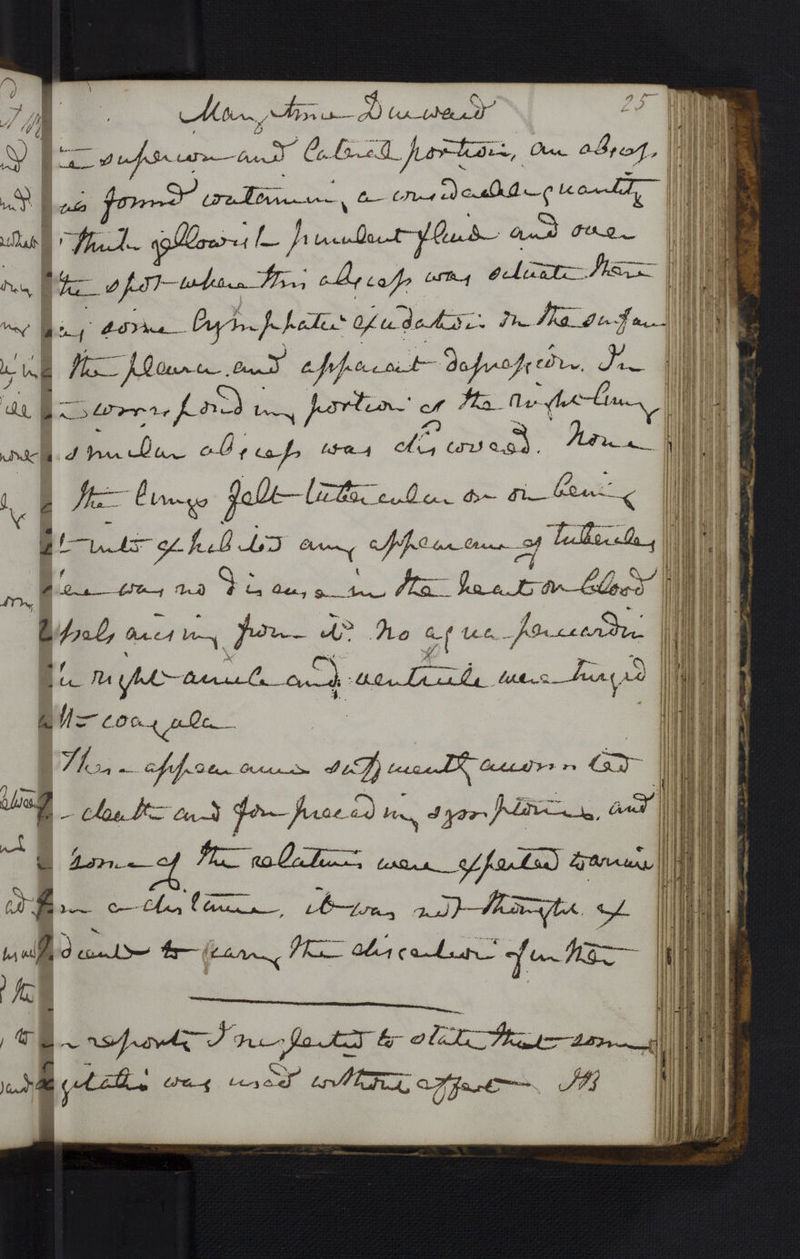 25
superior and lateral portion, an abscess
was found containing a considerable quantity
thick yellowish purulent fluid and over
the spot where this abscess was situate there
was some lymphatic exudation on the surface
the pleura and apparent depression. In
corresponding portion of the right lung
similar abscess was discovered. None
the lungs felt tubercular or on being
into exhibited any appearance of tubercles
there was no disease in the heart or blood
vessels arising from it. No aqua pericardii
The right auricle and ventricle were turgid
with coagula
These appearances sufficiently accounted
death and for preceding symptoms, and
some of the relatives were expected to arrive
from a distance, it was not thought
to carry the dissection further
reports I neglected to state that some
was used without effect JB